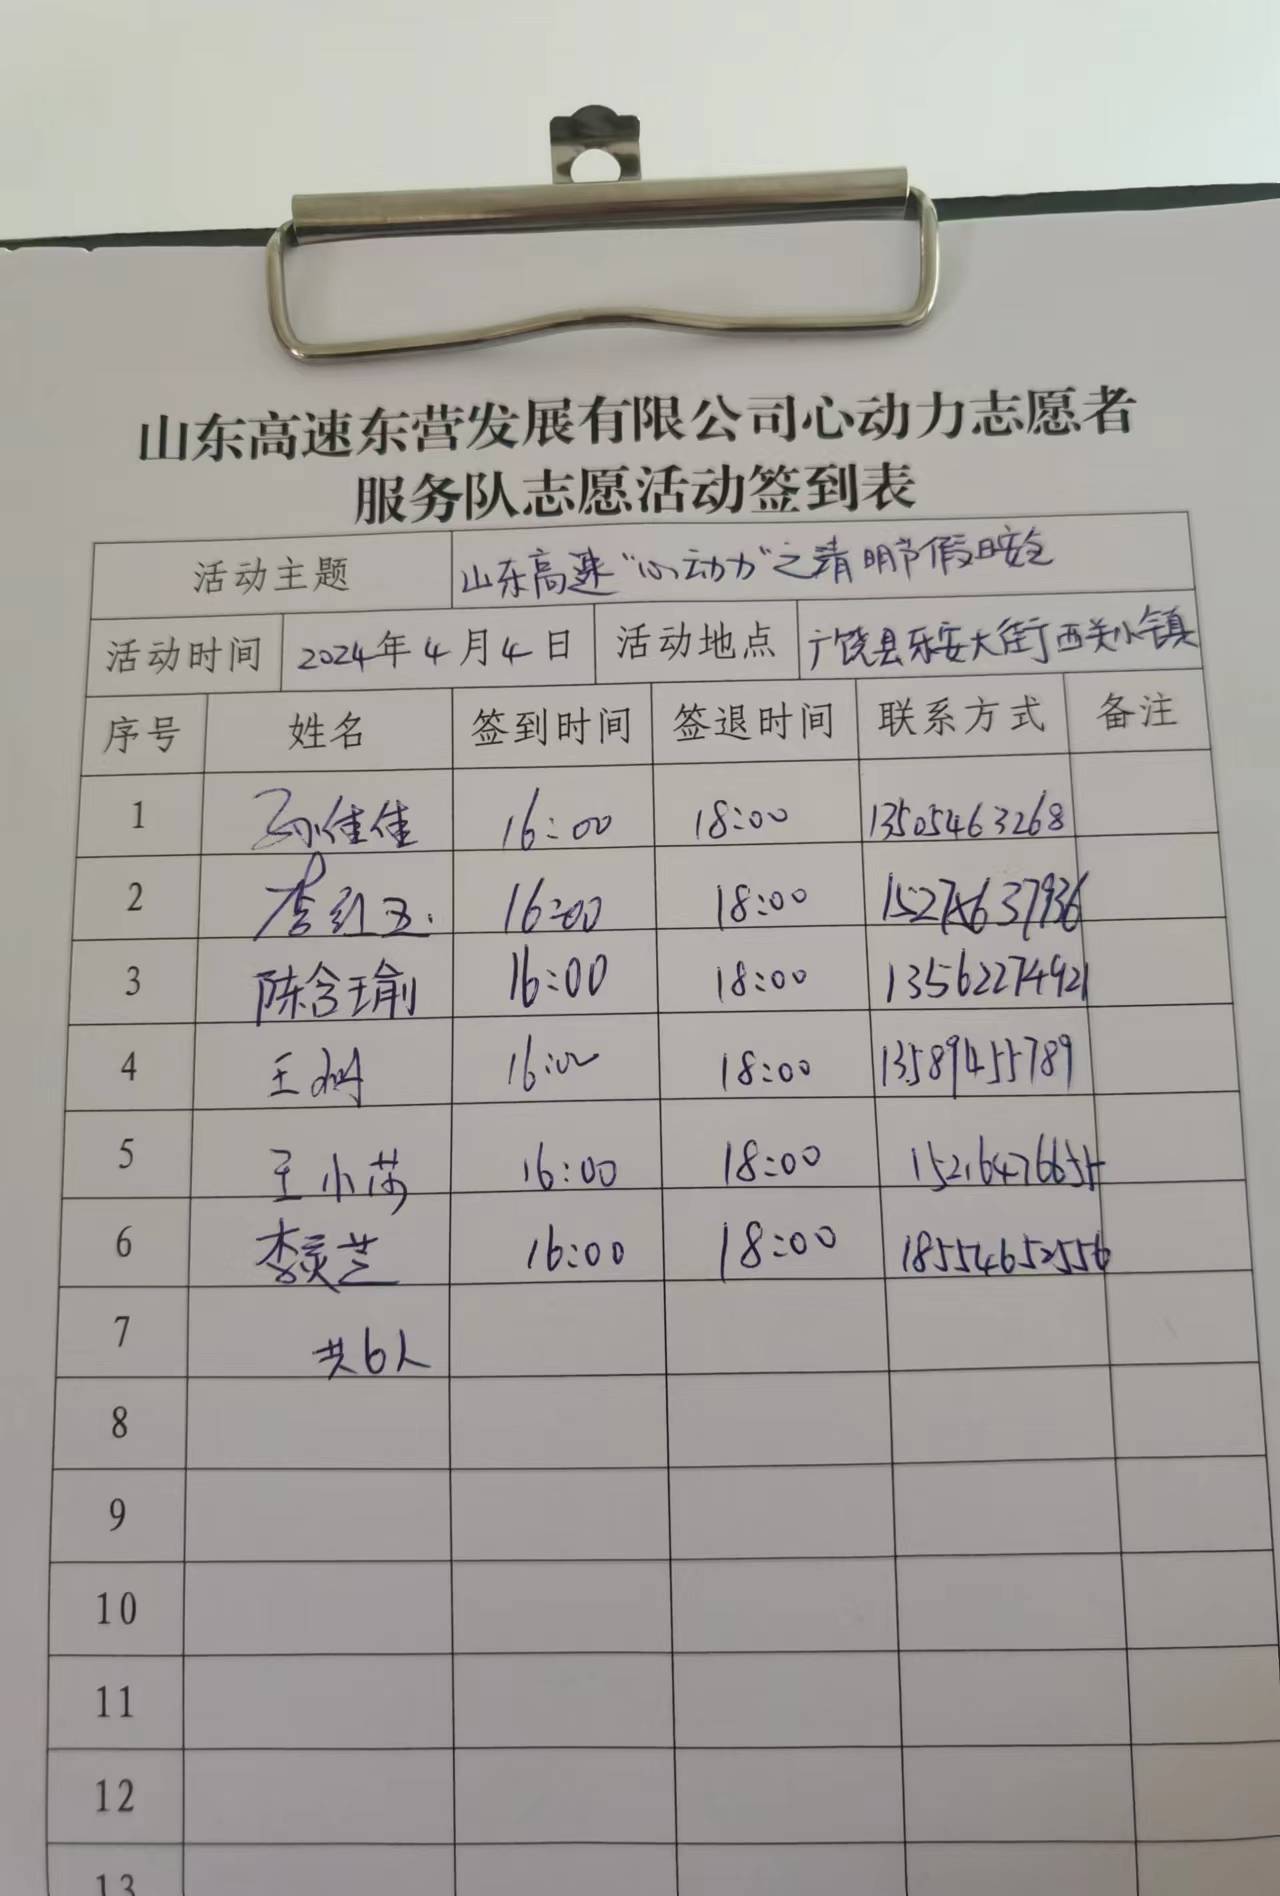 山东高速东营发展有限公司心动力志愿者
服务队志愿活动签到表
活动主题 山东高速“心动力”之清明节假日安全
活动时间 2024年4月4日 活动地点 广饶县乐安大街西关小镇
序号 姓名 签到时间 签退时间 联系方式 备注
1 孙佳佳 16:00 18:00 13505463268
2 李红玉 16:00 18:00
3 陈含瑜 16:00 18:00 13562274921
4 王 16:00 18:00 13589455789
5 王小莎 16:00 18:00
6 李灵芝 16:00 18:00 18554652556
7 共6人
8
9
10
11
12
13